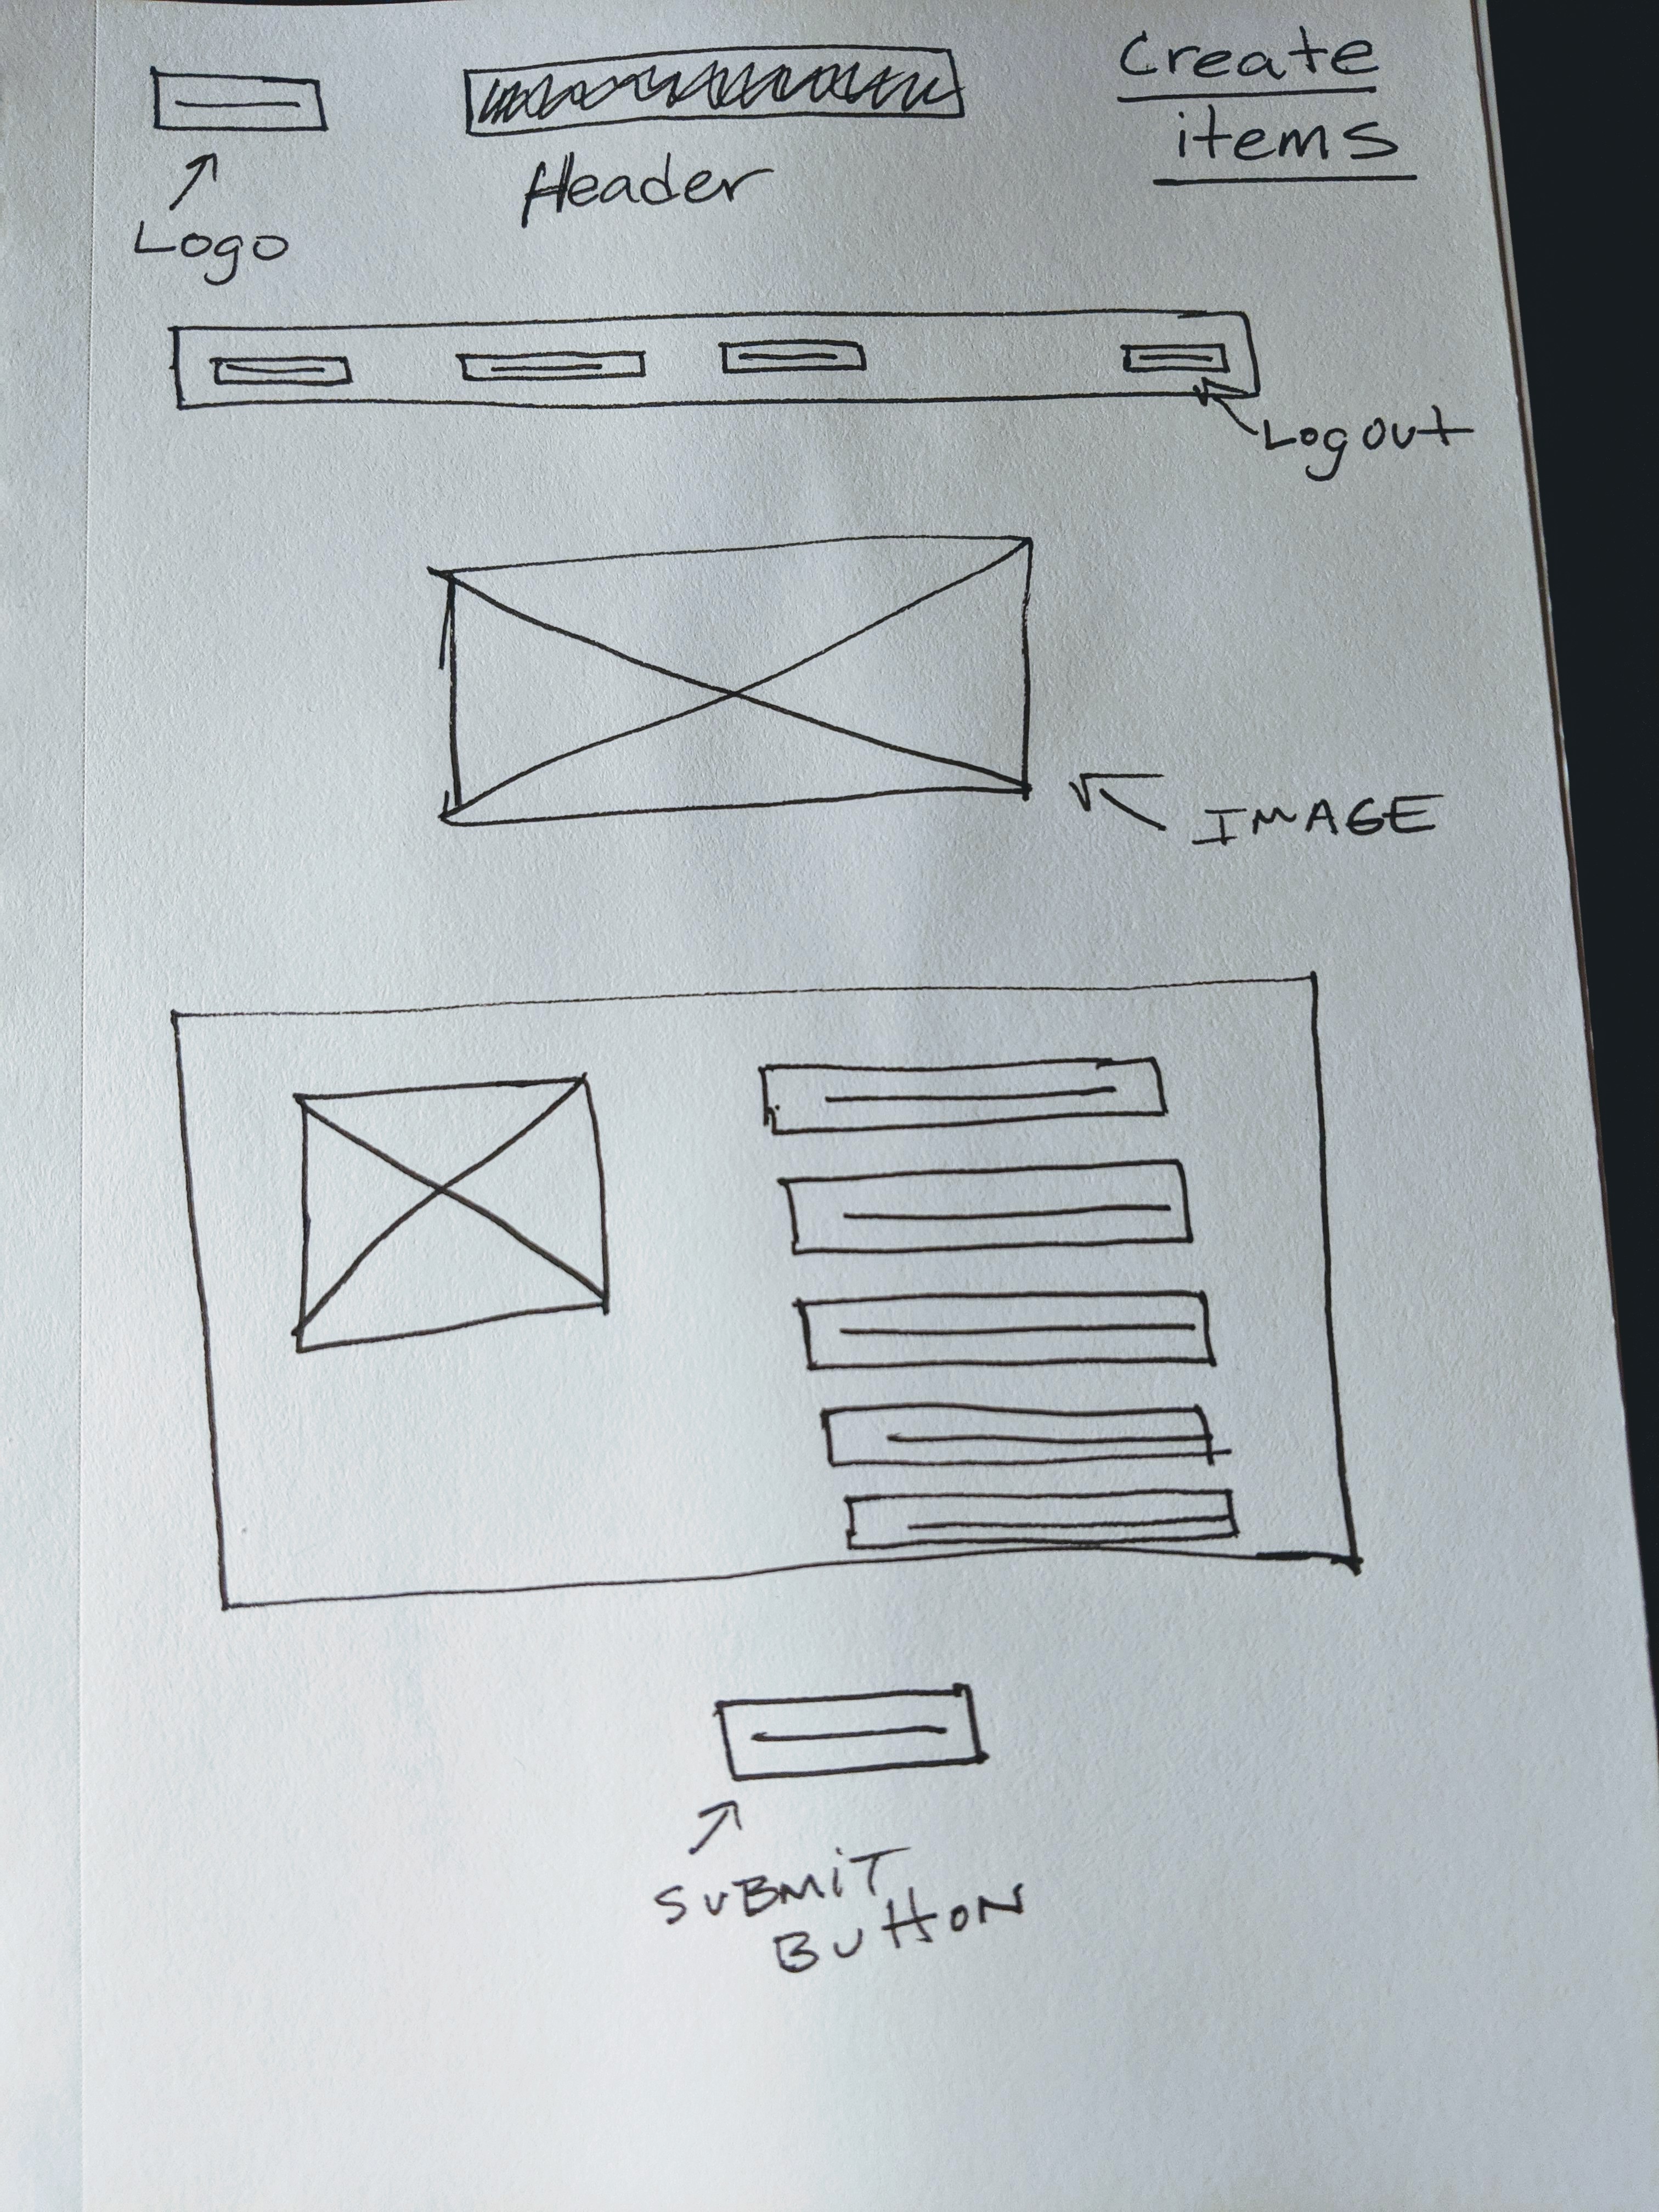 Create
items
Header
Logo
Logout
IMAGE
SUBMIT
BUTTON